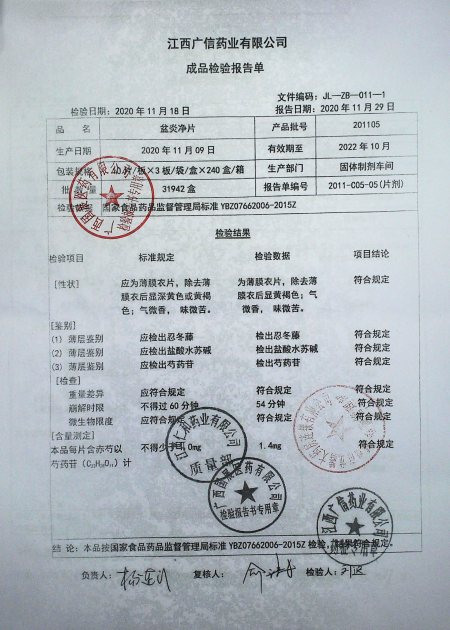 江西广信药业有限公司
成品检验报告单
文件编码：JL—ZB—011—1
检验日期：2020 年 11 月 18 日 报告日期：2020 年 11 月 29 日
品 名 盆炎净片 产品批号 201105
生产日期 2020 年 11 月 09 日 有效期至 2022 年 10 月
包装规格 板×3 板/袋/盒×240 盒/箱 生产部门 固体制剂车间
批 量 31942 盒 报告单编号 2011-005-05(片剂)
检验依据 国家食品药品监督管理局标准 YBZ07662006-2015Z
检验结果
检验项目 标准规定 检验数据 项目结论
[性状] 应为薄膜衣片，除去薄 为薄膜衣片，除去薄 符合规定
膜衣后显深黄色或黄褐 膜衣后显黄褐色；气
色；气微香，味微苦。 微香，味微苦。
[鉴别]
(1) 薄层鉴别 应检出忍冬藤 检出忍冬藤 符合规定
(2) 薄层鉴别 应检出盐酸水苏碱 检出盐酸水苏碱 符合规定
(3) 薄层鉴别 应检出芍药苷 检出芍药苷 符合规定
[检查]
重量差异 应符合规定 符合规定 符合规定
崩解时限 不得过 60 分钟 54 分钟 符合规定
微生物限度 应符合规定 符合规定 符合规定
[含量测定]
本品每片含赤芍以 不得少于1.0mg 1.4mg 符合规定
芍药苷（C₂₃H₂₈O₁₁）计
江西广信药业有限公司
质量部
检验报告书专用章
江西广信药业有限公司
结 论：本品按国家食品药品监督管理局标准 YBZ07662006-2015Z 检验，结果符合规定。
负责人： 复核人： 检验人：